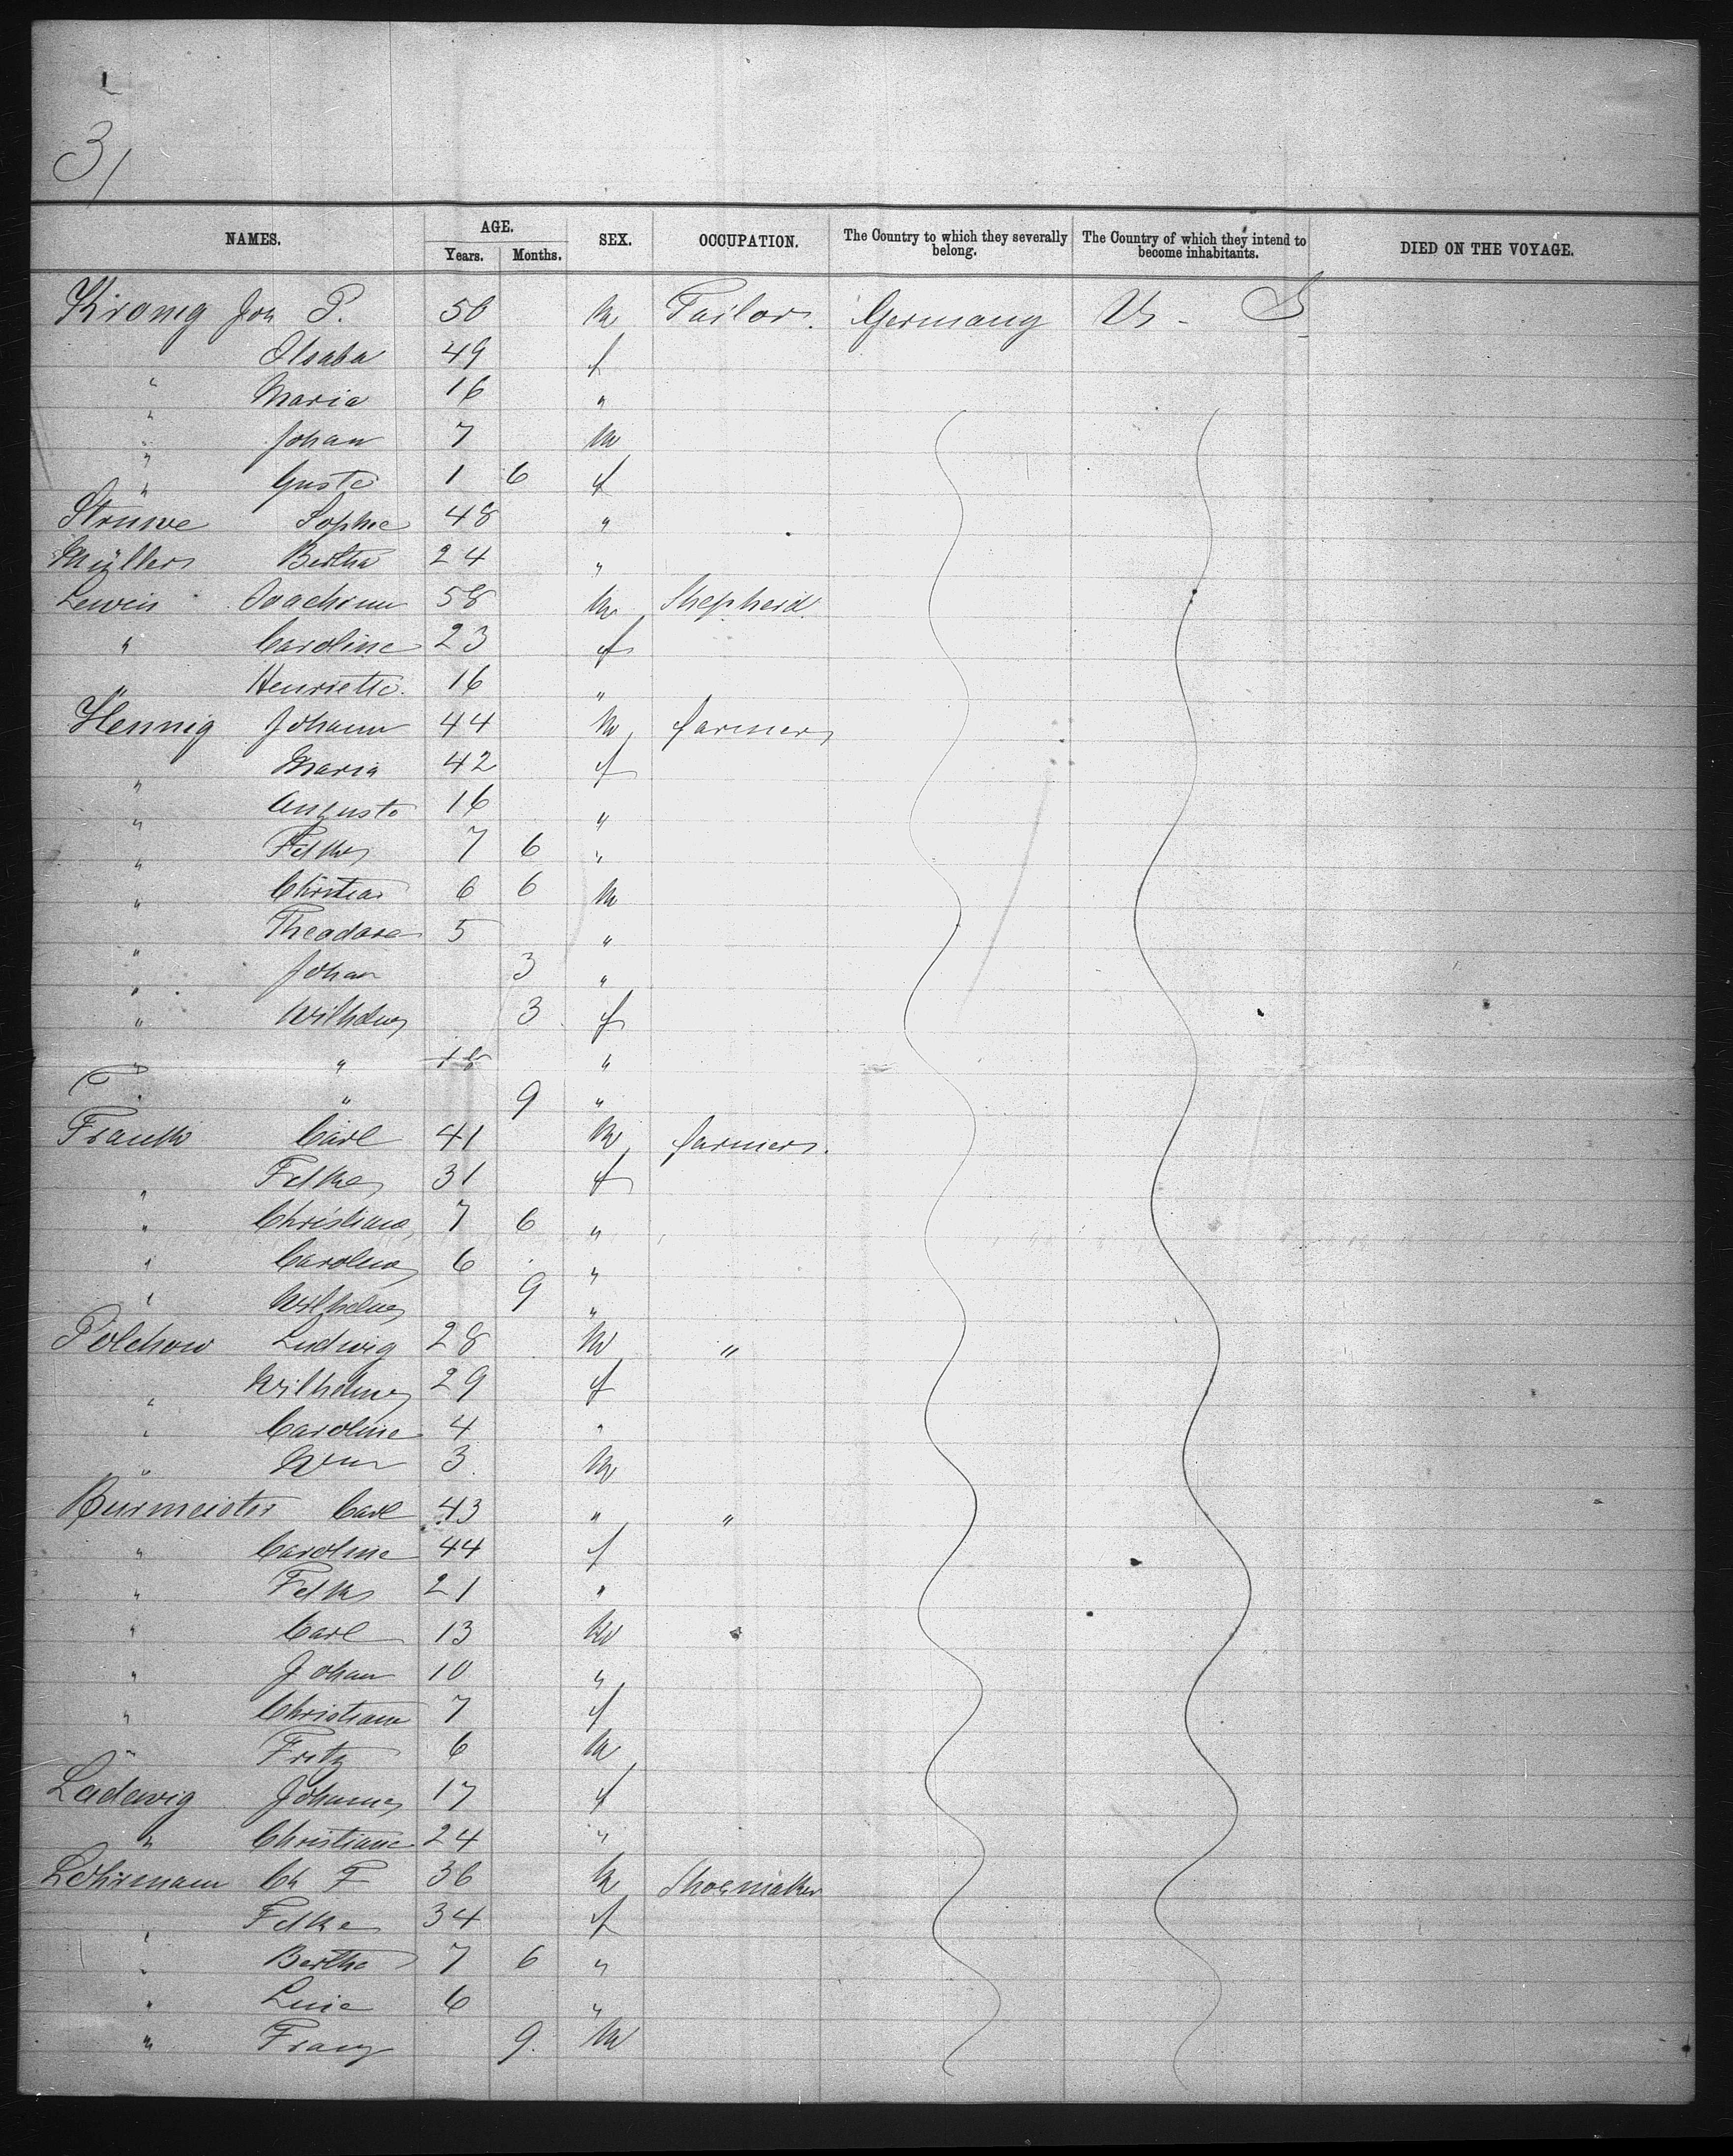 31
NAMES. AGE. Years. Months. SEX. OCCUPATION. The Country to which they severally belong. The Country of which they intend to become inhabitants. DIED ON THE VOYAGE.
Kronig Joh P. 50 M Tailor. Germany U. S
" Ilsaba 49 f
" Maria 16 "
" Johan 7 M
" Guste 1 6 f
Struwe Sophie 48 "
Müller Bertha 24 "
Lewin Joachim 58 M Shepherd.
" Caroline 23 f
" Henriette. 16 "
Hennig Johann 44 M farmer
" Maria 42 f
" Auguste 16 "
" 7 6 "
" Christian 6 6 M
" Theodore 5 "
" Johan 3 "
" Wilhelm 3 f
" " "
" 9 "
Frank Carl 41 M farmer.
" 31 f
" Christiana 7 6 "
" Carolina 6 "
" Wilhelm 9 "
Polchow Ludwig 28 M "
" Wilhelm 29 f
" Caroline 4 "
" 3 M
Burmeister Carl 43 " "
" Caroline 44 f
" 21 "
" Carl 13 M
" Johan 10 "
" Christiane 7 f
" Fritz 6 M
Ladewig Johanna 17 f
" Christiane 24 "
Lohrmann Ch F 36 M Shoemaker
" 34 f
" Bertha 7 6 "
" 6 "
" Franz 9. M